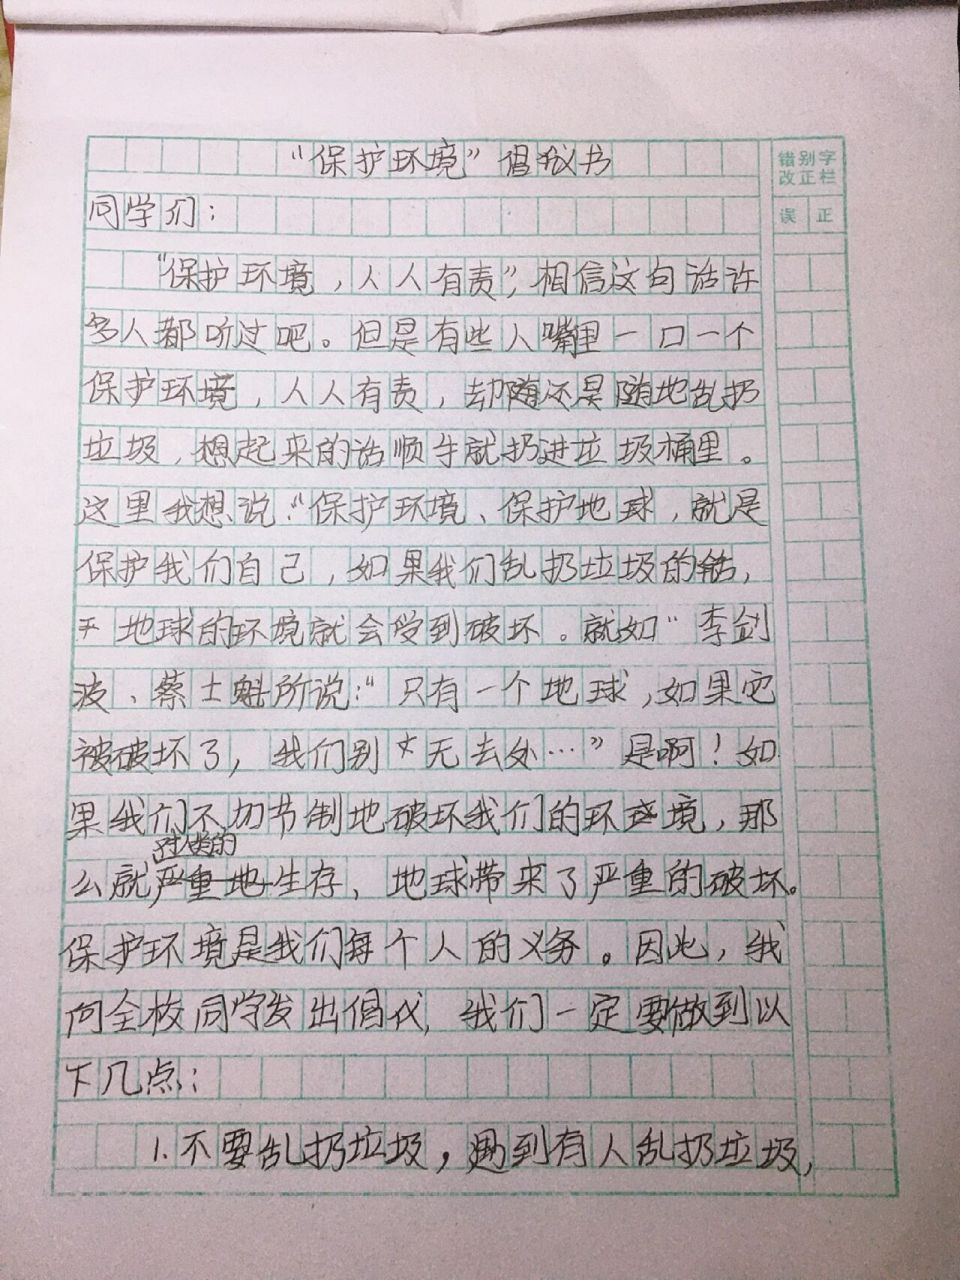 “保护环境”倡议书
错别字
改正栏
误 正
同学们：
“保护环境，人人有责”，相信这句话许
多人都听过吧。但是有些人嘴里一口一个
保护环境，人人有责，却随还是随地乱扔
垃圾，想起来的话顺手就扔进垃圾桶里。
这里我想说：“保护环境、保护地球，就是
保护我们自己，如果我们乱扔垃圾的话，
地球的环境就会受到破坏。就如“李剑
波、蔡士魁所说：“只有一个地球，如果它
被破坏了，我们别无去处…”是啊！如
果我们不切节制地破坏我们的环境，那
么就生存，地球带来了严重的破坏。
保护环境是我们每个人的义务。因此，我
向全校同学发出倡伩，我们一定要做到以
下几点：
1.不要乱扔垃圾，遇到有人乱扔垃圾，